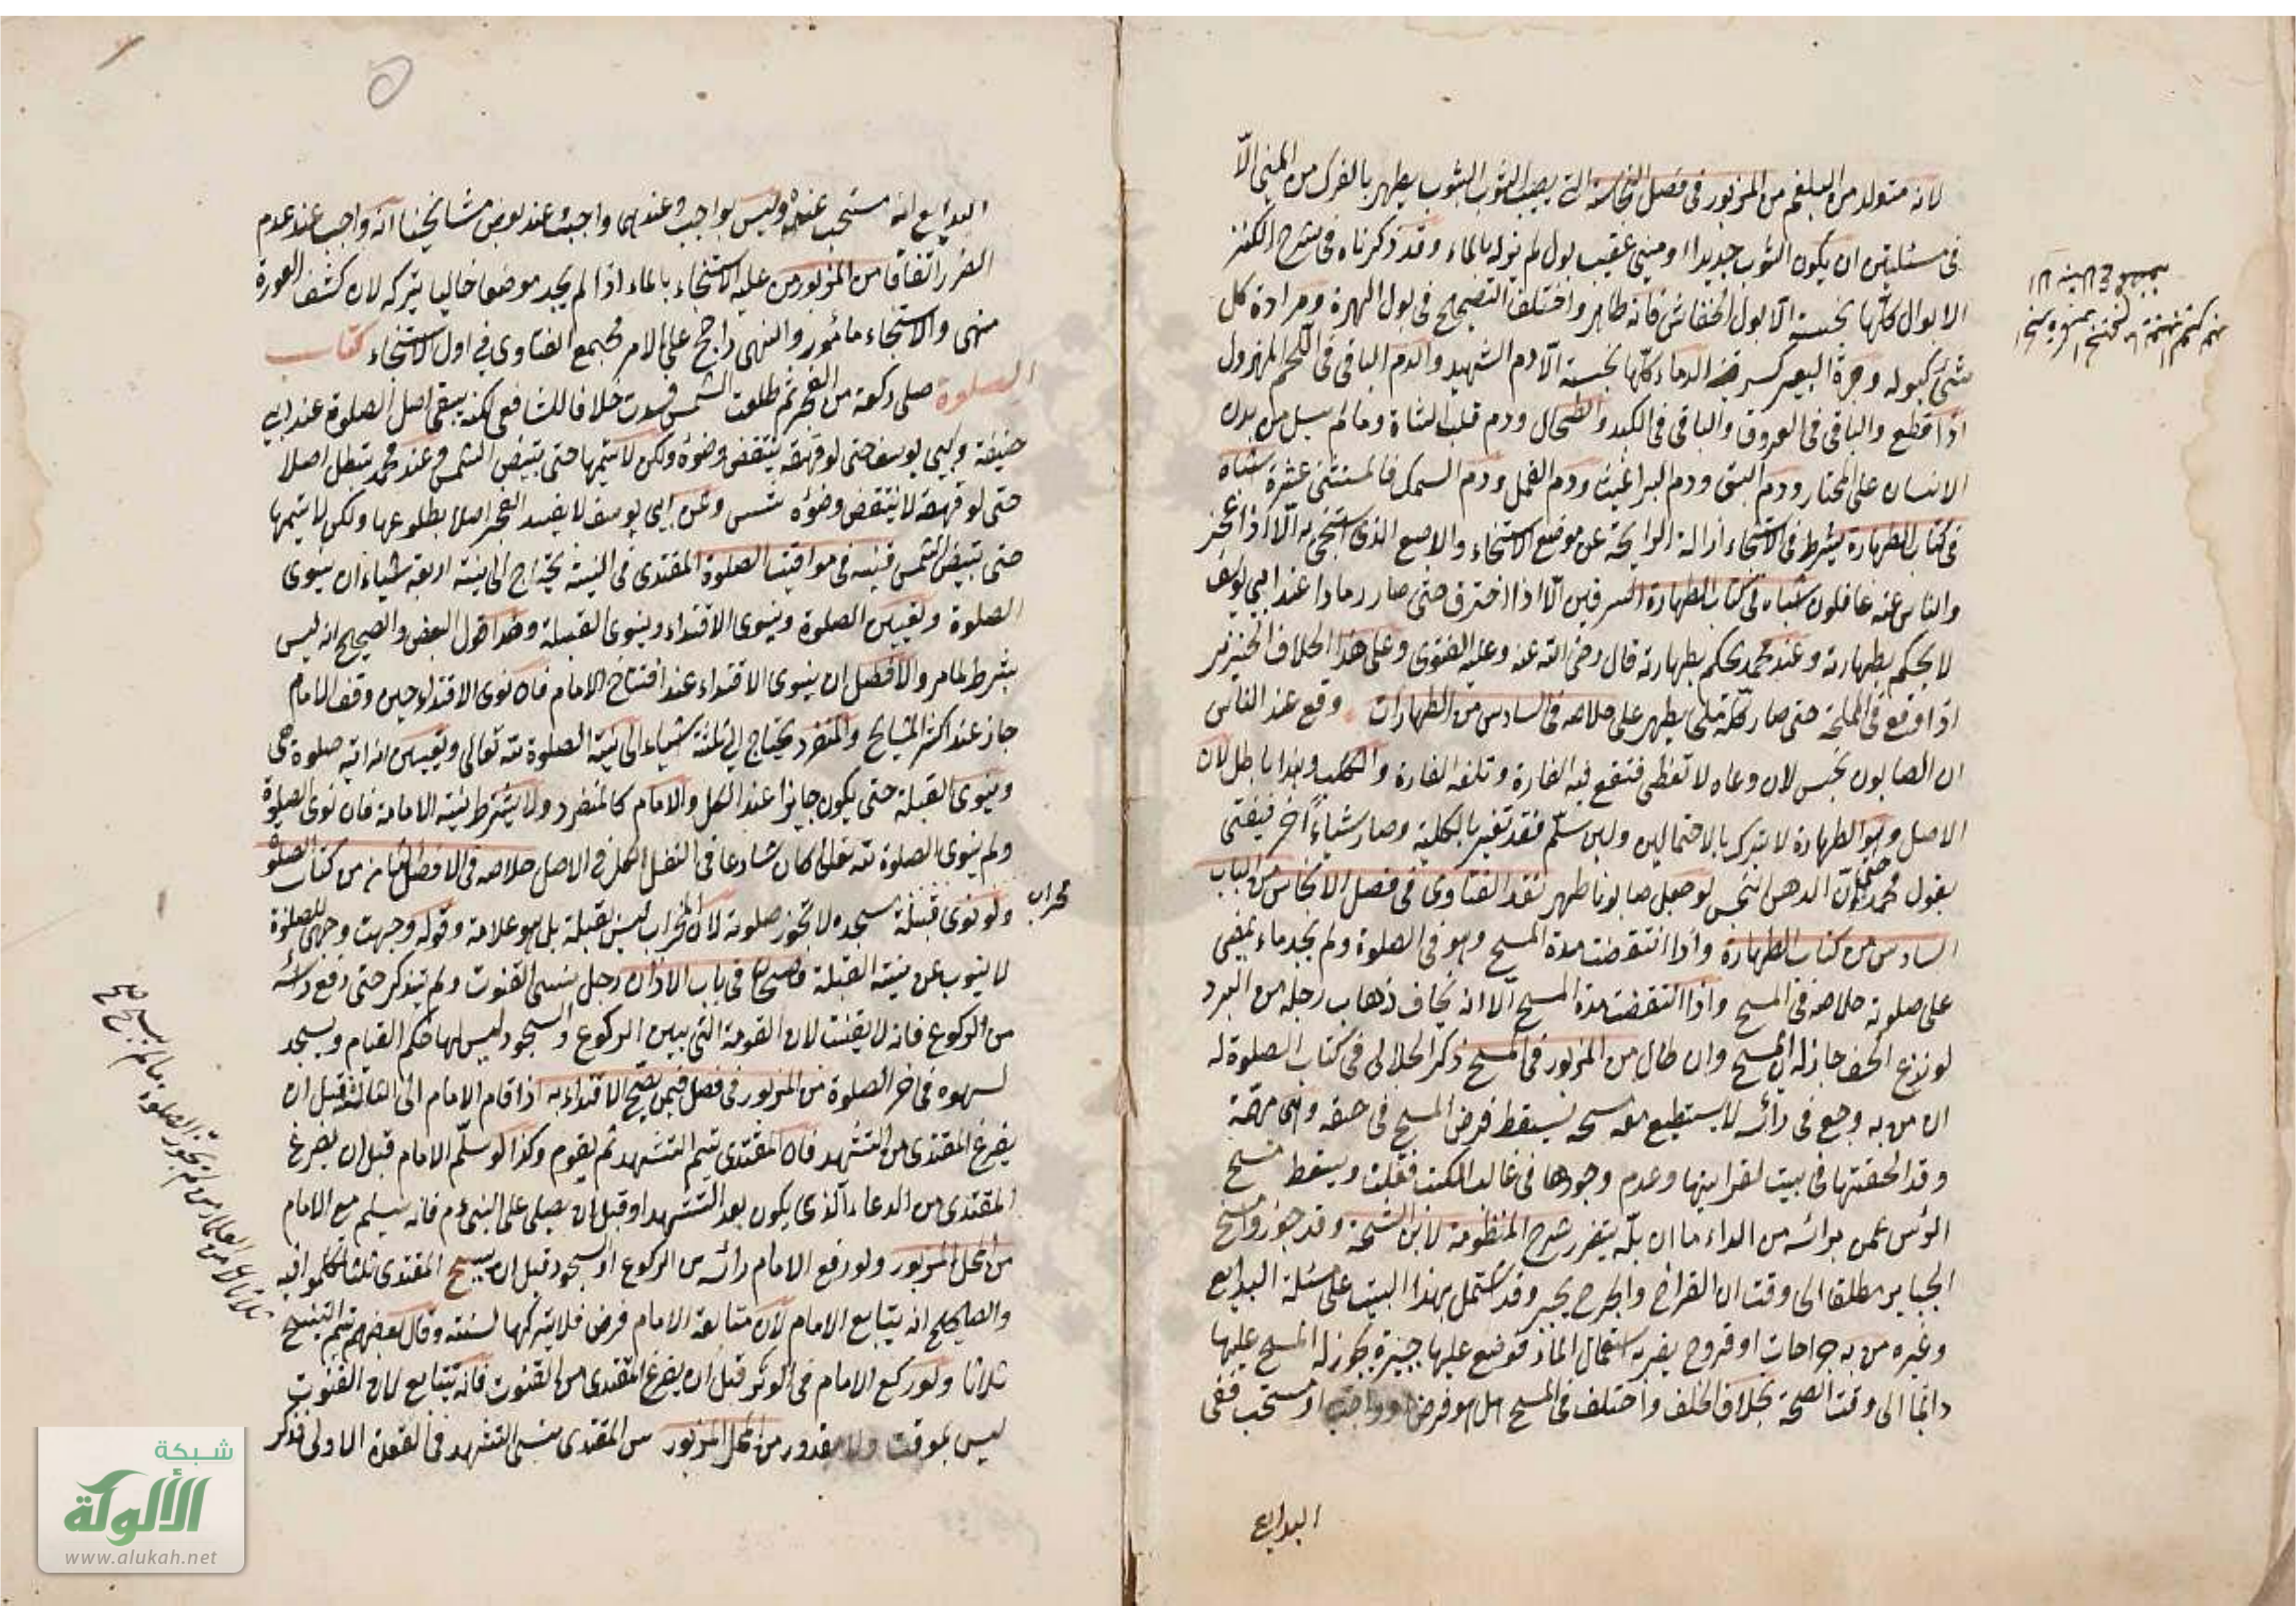 لانه متولد من البلغم من المزبور فى فصل النجاسة التى يصيب الثوب الثوب يطهر بالفرك من المنى الّا
فى مسئلتين ان يكون الثوب جديدا او منى عقيب بول لم يزله بالماء وقد ذكرناه فى شرح الكنز
الابوال كلّها نجسة الّا بول الخفاش فانه طاهر واختلف التصحيح فى بول الهرة ومرارة كل
شئ كبوله وجرة البعير كسرقينه الدماء كلّها نجسة الّا دم الشهيد والدم الباقى فى اللحم المهزول
اذا قطع والباقى فى العروق والباقى فى الكبد والطحال ودم قلب الشاة وما لم يسل من بدن
الانسان على المختار ودم البق ودم البراغيث ودم القمل ودم السمك فالمستثنى عشرة اشباه
فى كتاب الطهارة يشترط فى الاستنجاء ازالة الرايحة عن موضع الاستنجاء والاصبع الذى استنجى به الّا اذا عجز
والناس عنه غافلون اشباه فى كتاب الطهارة السرقين الّا اذا احترق حتى صار رمادا عند ابى يوسف
لا يحكم بطهارته وعند محمد يحكم بطهارته قال رضى الله عنه وعليه الفتوى وعلى هذا الخلاف الخنزير
اذا وقع فى المملحة حتى صار ملحا يطهر على خلاصه فى السادس من الطهارات وقع عند الناس
ان الصابون نجس لان وعاه لا تغطى فتقع فيه الفارة وتلغه الفارة والكلب وهذا باطل لان
الاصل وهو الطهارة لا يترك بالاحتمالين ولئن سلّم فقد تغير بالكلية وصار شياءً آخر فيفتى
بقول محمد حتى ان الدهن النجس لو جعل صابونا طهر نقد الفتاوى فى فصل الانجاس من الباب
السادس من كتاب الطهارة واذا انتقضت مدة المسح وهو فى الصلوة ولم يجد ماء يمضى
على صلوته خلاصه فى المسح واذا انتقضت مدة المسح الّا انه يخاف ذهاب رجله من البرد
لو نزع الخف جاز له المسح وان طال من المزبور فى المسح ذكر الجلالى فى كتاب الصلوة له
ان من به وجع فى رأسه لا يستطيع معه مسحه يسقط فرض المسح فى حقه وهى مهمّة
وقد الحقتها فى بيت لغرابتها وعدم وجودها فى غالب الكتب فقلت ويسقط مسح
الرأس عمن برأسه من الداء ما ان بلّه يتضرر شرح المنظومة لابن الشحنة وقد جوزوا مسح
الجباير مطلقا الى وقت ان القراح والجرح يجبر وقد اشتمل هذا البيت على مسئلة البدايع
وغيره من به جراحات او قروح يضره استعمال الماء فوضع عليها جبيرة يجوز له المسح عليها
دائما الى وقت الصحة بخلاف الخف واختلف فى المسح هل هو فرض او واجب او مستحب ففى
البدايع
البدايع انه مستحب عنده وليس بواجب وعندهما واجب وعند بعض مشايخنا انه واجب عند عدم
الضرر اتفاقا من المزبور من عليه الاستنجاء بالماء اذا لم يجد موضعا خاليا يتركه لان كشف العورة
منهى والاستنجاء مأمور والنهى راجح على الامر مجمع الفتاوى فى اول الاستنجاء كتاب
الصلوة صلى ركعة من الفجر ثم طلعت الشمس فسدت خلافا للشافعى لكنه يبقى اصل الصلوة عند ابى
حنيفة وابى يوسف حتى لو قهقه ينتقض وضوءه ولكن لا يتمها حتى تبيض الشمس وعند محمد يبطل اصلا
حتى لو قهقه لا ينتقض وضوءه شمس وعن ابى يوسف لا يفسد الفجر اصلا بطلوعها ولكن لا يتمها
حتى تبيض الشمس قنيه فى مواقيت الصلوة المقتدى فى النية يحتاج الى نية اربعة اشياء ان ينوى
الصلوة وتعيين الصلوة وينوى الاقتداء وينوى القبلة وهذا قول البعض والصحيح انه ليس
بشرط لما مر والافضل ان ينوى الاقتداء عند افتتاح الامام فان نوى الاقتداء حين وقف الامام
جاز عند اكثر المشايخ والمنفرد يحتاج الى ثلثة اشياء الى نية الصلوة لله تعالى وتعيين انه اية صلوة هى
وينوى القبلة حتى يكون جايزا عند الكل والامام كالمنفرد ولا يشترط نية الامامة فان نوى الصلوة
ولم ينوى الصلوة لله تعالى كان شارعا فى النفل الكل فى الاصل خلاصه فى الفصل الثامن من كتاب الصلوة
ولو نوى قبلة مسجده لا تجوز صلوته لان المحراب ليس بقبلة بل هو علامة وقوله وجهت وجهى للصلوة
محراب
لا ينوب عن نية القبلة فى باب الاذان رجل نسى القنوت ولم يتذكر حتى رفع رأسه
من الركوع فانه لا يقنت لان القومة التى بين الركوع والسجود ليس لها حكم القيام ويسجد
لسهوه فى اخر الصلوة من المزبور فى فصل فيمن يصح الاقتداء به اذا قام الامام الى الثالثة قبل ان
يفرغ المقتدى من التشهد فان المقتدى يتم التشهد ثم يقوم وكذا لو سلّم الامام قبل ان يفرغ
المقتدى من الدعاء الذى يكون بعد التشهد او قبل ان يصلى على النبى عم فانه يسلم مع الامام
من المحل المزبور ولو رفع الامام رأسه من الركوع او السجود قبل ان يسبح المقتدى ثلثا
والصحيح انه يتابع الامام لان متابعة الامام فرض فلا يتركها لسنته وقال بعضهم يتم التسبيح
ثلاثا ولو ركع الامام فى الوتر قبل ان يفرغ المقتدى من القنوت فانه يتابع لان القنوت
ليس بموقت ولا مقدور من المحل المزبور من المقتدى نسى التشهد فى القعدة الاولى فذكر
شبكة
الألوكة
www.alukah.net